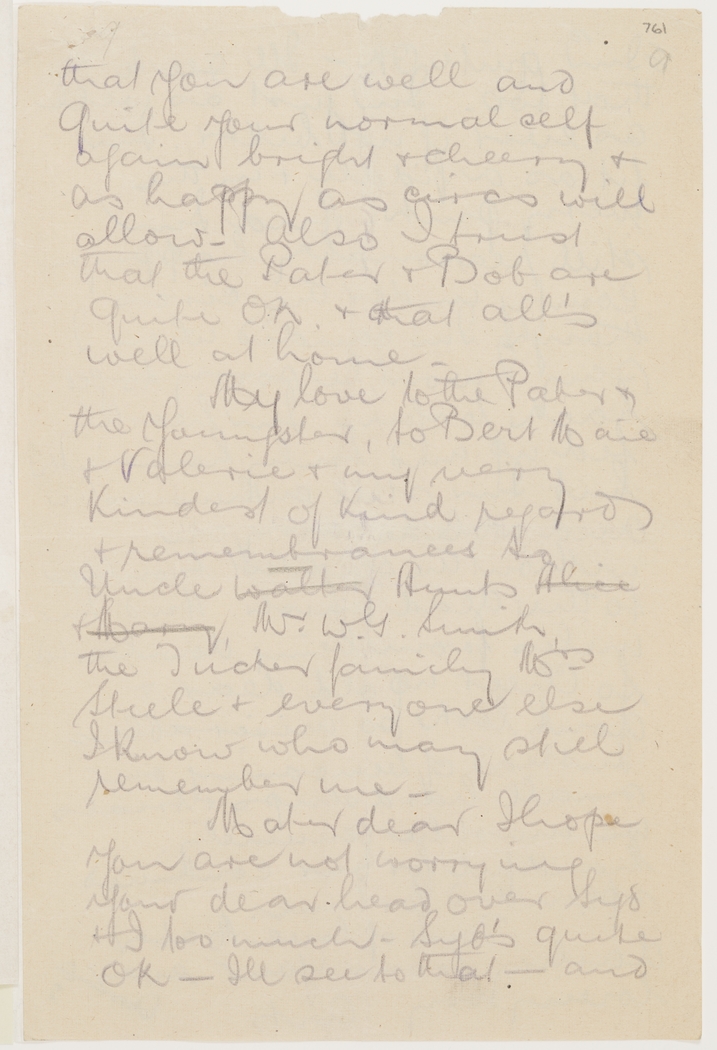 761
9
that you are well and
quite your normal self
again bright & cheery &
as happy as circs will
allow - Also I trust
that the Pater & Bob are
quite OK. & that all's
well at home -
My love to the Pater &
the Youngster, to Bert Marie
& Valerie & my very
Kindest of kind regards
& remembrances to
Uncle Walter Aunts Alice
& Mary, Mr. W.G. Smith,
the Tucker family Mrs
Steele & everyone else
I know who may still
remember me -
Mater dear I hope
you are not worrying
your dear head over Syd
& I too much - Syd's quite
OK - Ill see to that - and